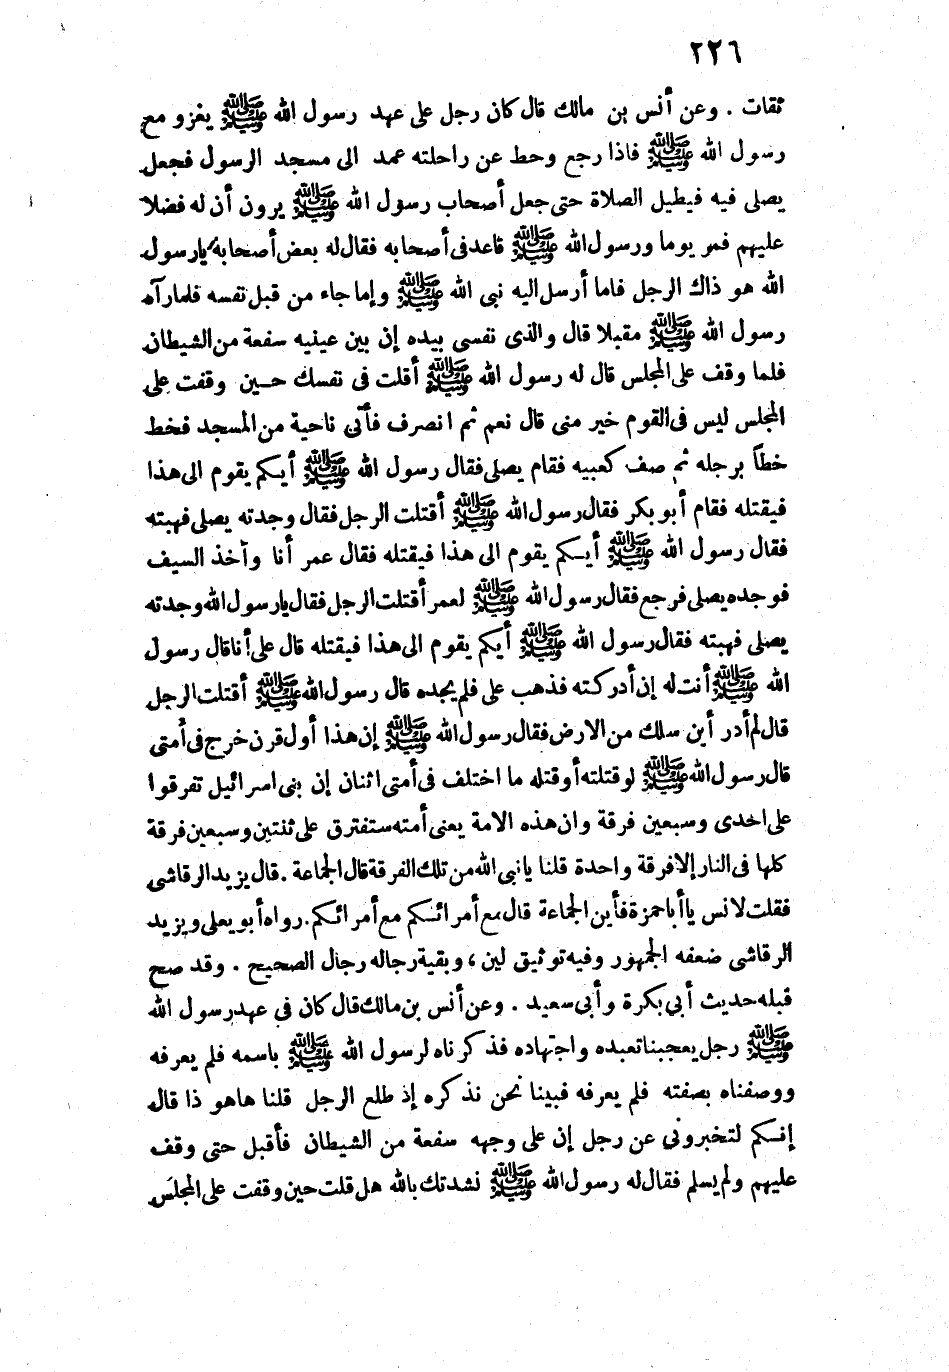 ٢٢٦
ثقات . وعن أنس بن مالك قال كان رجل على عهد رسول الله ﷺ يغزو مع
رسول الله ﷺ فاذا رجع وحط عن راحلته عمد الى مسجد الرسول فجعل
يصلى فيه فيطيل الصلاة حتى جعل أصحاب رسول الله ﷺ يرون أن له فضلا
عليهم فمر يوما ورسول الله ﷺ قاعد فى أصحابه فقال له بعض أصحابه يارسول
الله هو ذاك الرجل فاما أرسل اليه نبى الله ﷺ وإما جاء من قبل نفسه فلما رآه
رسول الله ﷺ مقبلا قال والذى نفسى بيده إن بين عينيه سفعة من الشيطان
فلما وقف على المجلس قال له رسول الله ﷺ أقلت فى نفسك حين وقفت على
المجلس ليس فى القوم خير منى قال نعم ثم انصرف فأتى ناحية من المسجد فخط
خطاً برجله ثم صف كعبيه فقام يصلى فقال رسول الله ﷺ أيكم يقوم الى هذا
فيقتله فقام أبو بكر فقال رسول الله ﷺ أقتلت الرجل فقال وجدته يصلى فهبته
فقال رسول الله ﷺ أيكم يقوم الى هذا فيقتله فقال عمر أنا وآخذ السيف
فوجده يصلى فرجع فقال رسول الله ﷺ لعمر أقتلت الرجل فقال يارسول الله وجدته
يصلى فهبته فقال رسول الله ﷺ أيكم يقوم الى هذا فيقتله قال على أنا قال رسول
الله ﷺ أنت له إن أدركته فذهب على فلم يجده قال رسول الله ﷺ أقتلت الرجل
قال لم أدر أين سلك من الارض فقال رسول الله ﷺ إن هذا أول قرن خرج فى أمتى
قال رسول الله ﷺ لو قتلته أو قتله ما اختلف فى أمتى اثنان إن بنى اسرائيل تفرقوا
على احدى وسبعين فرقة وان هذه الامة يعنى أمته ستفترق على ثنتين وسبعين فرقة
كلها فى النار إلا فرقة واحدة قلنا يانبى الله من تلك الفرقة قال الجماعة . قال يزيد الرقاشى
فقلت لانس ياأباحمزة فأين الجماعة قال مع أمرائكم مع أمرائكم . رواه أبو يعلى ويزيد
الرقاشى ضعفه الجمهور وفيه توثيق لين ، وبقية رجاله رجال الصحيح . وقد صح
قبله حديث أبي بكرة وأبى سعيد . وعن أنس بن مالك قال كان في عهد رسول الله
ﷺ رجل يعجبنا تعبده واجتهاده فذكرناه لرسول الله ﷺ باسمه فلم يعرفه
ووصفناه بصفته فلم يعرفه فبينا نحن نذكره إذ طلع الرجل قلنا هاهو ذا قال
إنكم لتخبروني عن رجل إن على وجهه سفعة من الشيطان فأقبل حتى وقف
عليهم ولم يسلم فقال له رسول الله ﷺ نشدتك بالله هل قلت حين وقفت على المجلس